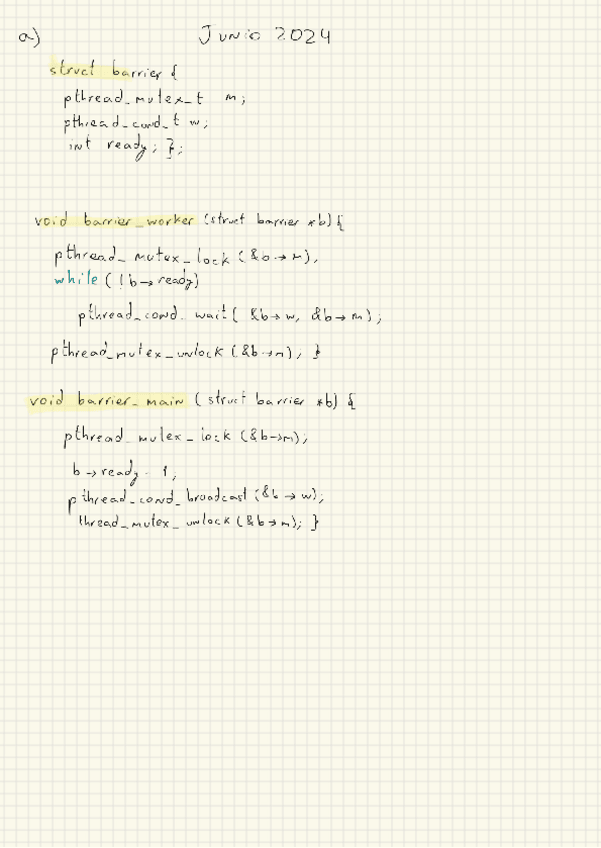 a) Junio 2024
struct barrier {
pthread_mutex_t m;
pthread_cond_t w;
int ready; };
void barrier_worker (struct barrier *b){
pthread_mutex_lock (&b→m),
while ( !b→ready)
pthread_cond_wait( &b→w, &b→m);
pthread_mutex_unlock (&b→m); }
void barrier_main ( struct barrier *b) {
pthread_mutex_lock (&b→m);
b→ready - 1;
pthread_cond_broadcast (&b→w),
thread_mutex_unlock (&b→m); }